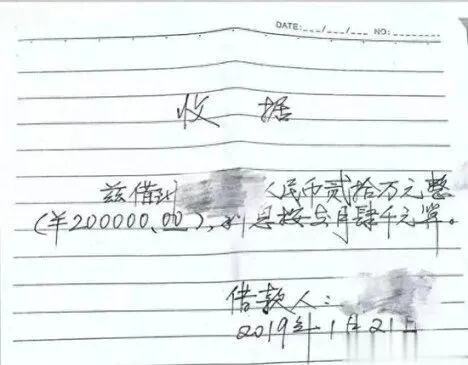 DATE: ___/___/___ NO: ______
收 据
兹借到 人民币贰拾万元整
(¥200000.00), 利息按每月肆千元算。
借款人:
2019年1月21日